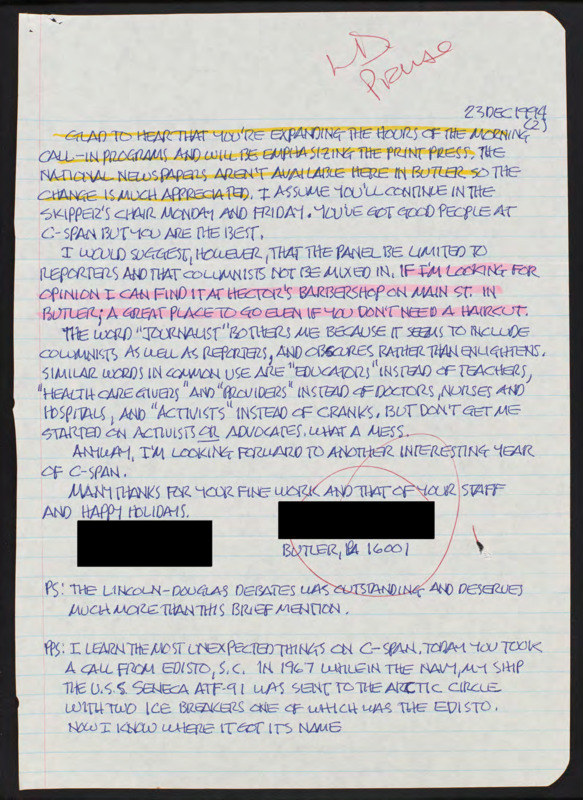 LD
Please
23 DEC 1994
(2)
GLAD TO HEAR THAT YOU'RE EXPANDING THE HOURS OF THE MORNING
CALL-IN PROGRAMS AND WILL BE EMPHASIZING THE PRINT PRESS. THE
NATIONAL NEWSPAPERS AREN'T AVAILABLE HERE IN BUTLER SO THE
CHANGE IS MUCH APPRECIATED. I ASSUME YOU'LL CONTINUE IN THE
SKIPPER'S CHAIR MONDAY AND FRIDAY. YOU'VE GOT GOOD PEOPLE AT
C-SPAN BUT YOU ARE THE BEST.
I WOULD SUGGEST, HOWEVER, THAT THE PANEL BE LIMITED TO
REPORTERS AND THAT COLUMNISTS NOT BE MIXED IN. IF I'M LOOKING FOR
OPINION I CAN FIND IT AT HECTOR'S BARBERSHOP ON MAIN ST. IN
BUTLER; A GREAT PLACE TO GO EVEN IF YOU DON'T NEED A HAIRCUT.
THE WORD "JOURNALIST" BOTHERS ME BECAUSE IT SEEMS TO INCLUDE
COLUMNISTS AS WELL AS REPORTERS, AND OBSCURES RATHER THAN ENLIGHTENS.
SIMILAR WORDS IN COMMON USE ARE "EDUCATORS" INSTEAD OF TEACHERS,
"HEALTH CARE GIVERS" AND "PROVIDERS" INSTEAD OF DOCTORS, NURSES AND
HOSPITALS, AND "ACTIVISTS" INSTEAD OF CRANKS. BUT DON'T GET ME
STARTED ON ACTIVISTS OR ADVOCATES. WHAT A MESS.
ANYWAY, I'M LOOKING FORWARD TO ANOTHER INTERESTING YEAR
OF C-SPAN.
MANY THANKS FOR YOUR FINE WORK AND THAT OF YOUR STAFF
AND HAPPY HOLIDAYS.
BUTLER, PA 16001
PS: THE LINCOLN-DOUGLAS DEBATES WAS OUTSTANDING AND DESERVES
MUCH MORE THAN THIS BRIEF MENTION.
PPS: I LEARN THE MOST UNEXPECTED THINGS ON C-SPAN. TODAY YOU TOOK
A CALL FROM EDISTO, S.C. IN 1967 WHILE IN THE NAVY, MY SHIP
THE U.S.S. SENECA ATF-91 WAS SENT TO THE ARCTIC CIRCLE
WITH TWO ICE BREAKERS ONE OF WHICH WAS THE EDISTO.
NOW I KNOW WHERE IT GOT ITS NAME